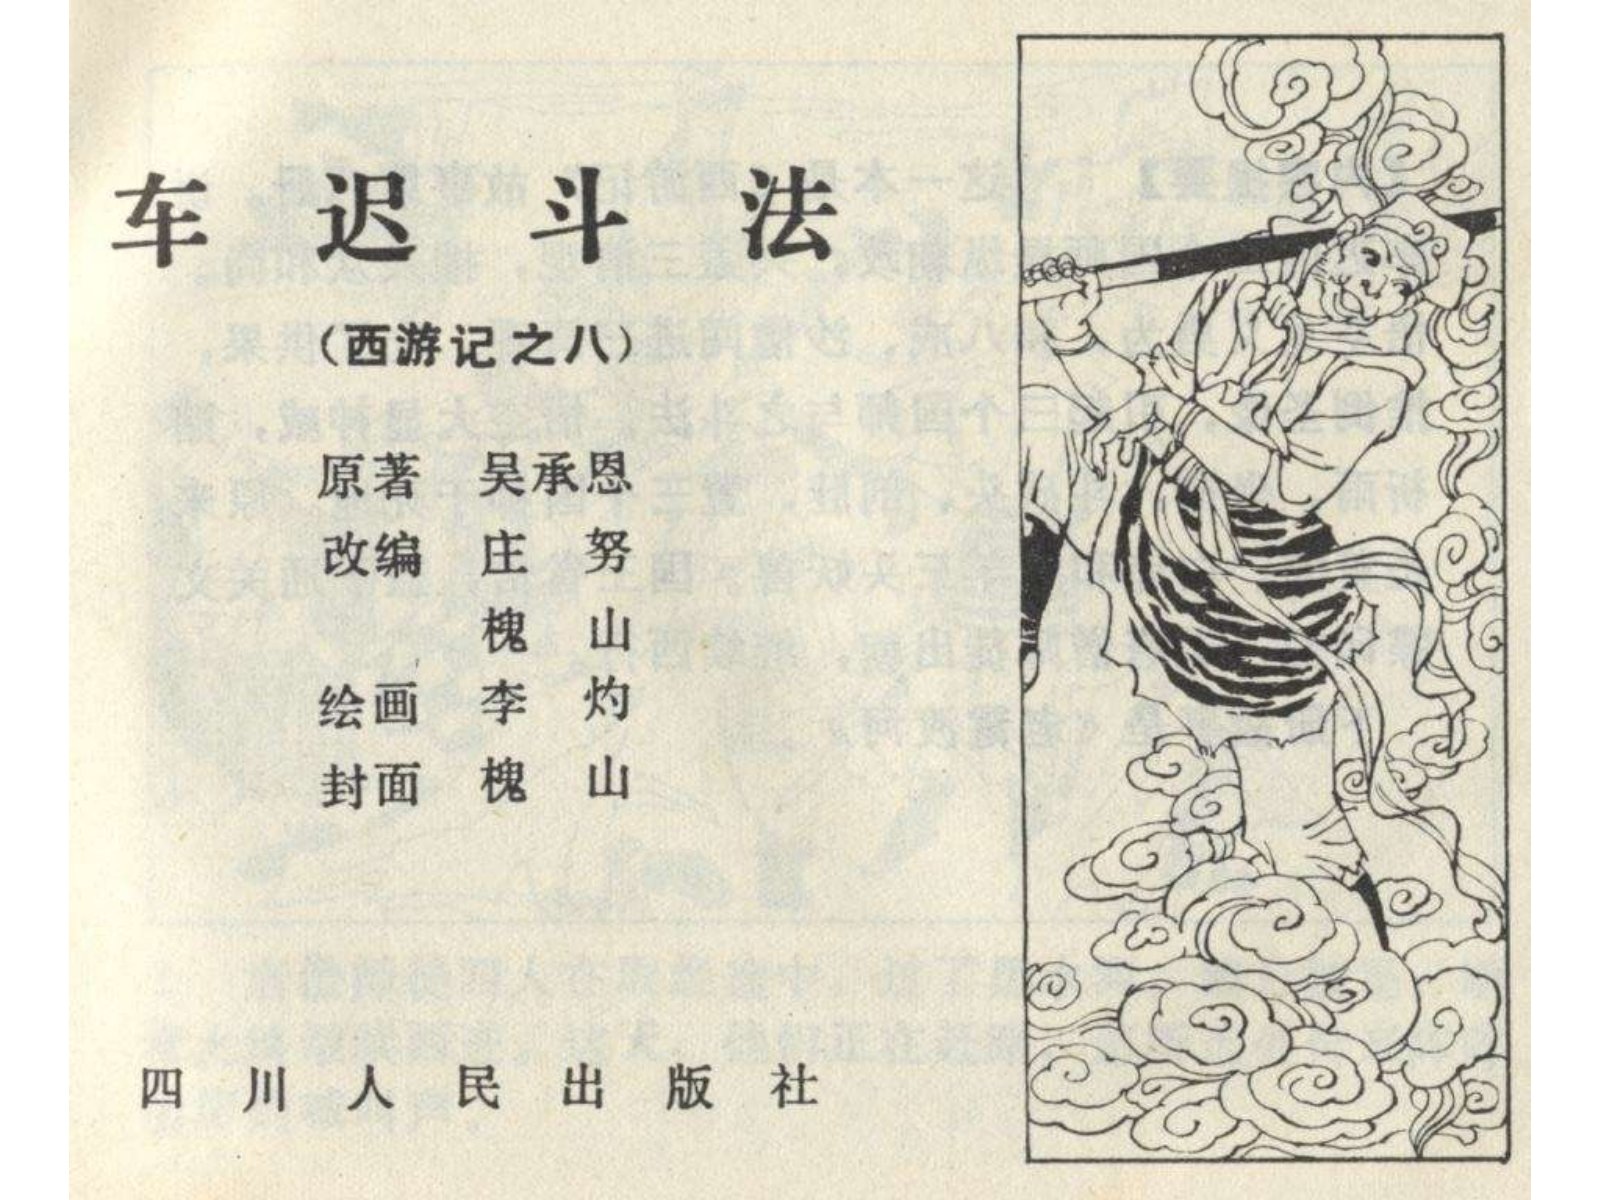 车迟斗法
（西游记之八）
原著 吴承恩
改编 庄努
槐山
绘画 李灼
封面 槐山
四川人民出版社